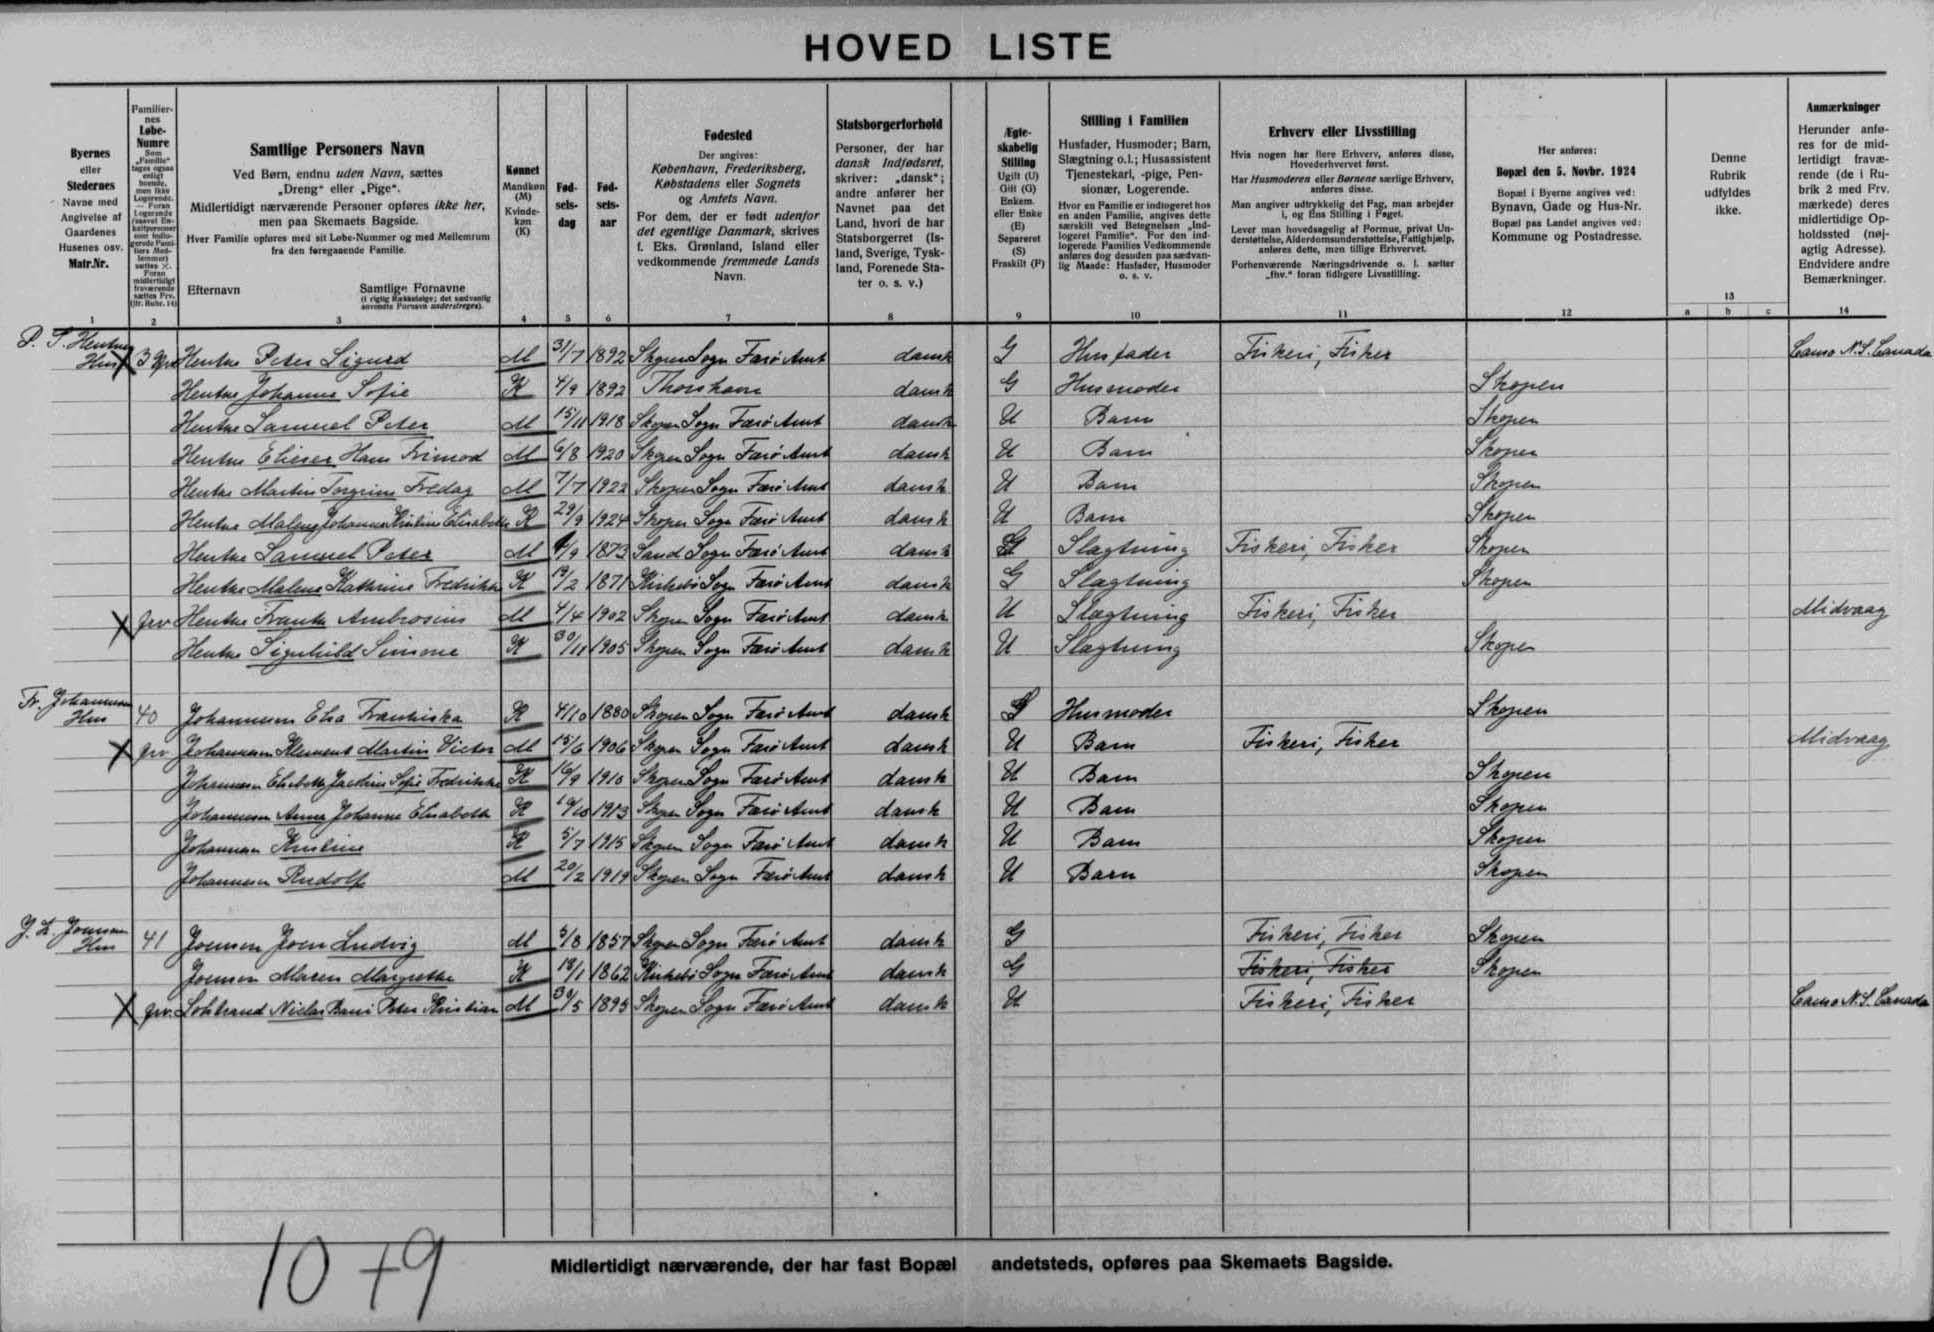 HOVED LISTE
Byernes
eller
Stedernes
Navne med
Angivelse af
Gaardenes
Husenes osv.
Matr.Nr.
1
Familier-
nes
Løbe-
Numre
2
Samtlige Personers Navn
Ved Børn, endnu uden Navn, sættes
„Dreng“ eller „Pige“.
Midlertidigt nærværende Personer opføres ikke her,
men paa Skemaets Bagside.
Hver Familie opføres med sit Løbe-Nummer og med Mellemrum
fra den foregaaende Familie.
Efternavn Samtlige Fornavne
(i rigtig Rækkefølge; det sædvanlig
anvendte Fornavn understreges).
3
Kønnet
Mandkøn
(M)
Kvinde-
køn
(K)
4
Fød-
sels-
dag
5
Fød-
sels-
aar
6
Fødested
Der angives:
København, Frederiksberg,
Købstadens eller Sognets
og Amtets Navn.
For dem, der er født udenfor
det egentlige Danmark, skrives
f. Eks. Grønland, Island eller
vedkommende fremmede Lands
Navn.
7
Statsborgerforhold
Personer, der har
dansk Indfødsret,
skriver: „dansk“;
andre anfører her
Navnet paa det
Land, hvori de har
Statsborgerret (Is-
land, Sverige, Tysk-
land, Forenede Sta-
ter o. s. v.)
8
Ægte-
skabelig
Stilling
Ugift (U)
Gift (G)
Enkem.
eller Enke
(E)
Separeret
(S)
Fraskilt (F)
9
Stilling i Familien
Husfader, Husmoder; Barn,
Slægtning o.l.; Husassistent
Tjenestekarl, -pige, Pen-
sionær, Logerende.
Hvor en Familie er indlogeret hos
en anden Familie, angives dette
særskilt ved Betegnelsen „Ind-
logeret Familie“. For den ind-
logerede Families Vedkommende
anføres dog desuden paa sædvan-
lig Maade: Husfader, Husmoder
o. s. v.
10
Erhverv eller Livsstilling
Hvis nogen har flere Erhverv, anføres disse,
Hovederhvervet først.
Har Husmoderen eller Børnene særlige Erhverv,
anføres disse.
Man angiver udtrykkelig det Fag, man arbejder
i, og Ens Stilling i Faget.
Lever man hovedsagelig af Formue, privat Un-
derstøttelse, Alderdomsunderstøttelse, Fattighjælp,
anføres dette, men tillige Erhvervet.
Forhenværende Næringsdrivende o. l. sætter
„fhv.“ foran tidligere Livsstilling.
11
Her anføres:
Bopæl den 5. Novbr. 1924
Bopæl i Byerne angives ved:
Bynavn, Gade og Hus-Nr.
Bopæl paa Landet angives ved:
Kommune og Postadresse.
12
Denne
Rubrik
udfyldes
ikke.
13
a b c
Anmærkninger
Herunder anfø-
res for de mid-
lertidigt fravæ-
rende (de i Ru-
brik 2 med Frv.
mærkede) deres
midlertidige Op-
holdssted (nøj-
agtig Adresse).
Endvidere andre
Bemærkninger.
14
P. S. Hentze Hus X Hentze Peter Sigurd M 31/7 1892 Skopen Sogn Færø Amt dansk G Husfader Fiskeri, Fisker Canso N.S. Canada
Hentze Johanne Sofie K 4/9 1892 Thorshavn dansk G Husmoder Skopen
Hentze Samuel Peter M 15/11 1918 Skopen Sogn Færø Amt dansk U Barn Skopen
Hentze Elieser Hans M 6/8 1920 Skopen Sogn Færø Amt dansk U Barn Skopen
Hentze Martin Torgrim Fredag M 7/7 1922 Skopen Sogn Færø Amt dansk U Barn Skopen
Hentze Malene Johanne Kristine Elisabeth K 29/9 1924 Skopen Sogn Færø Amt dansk U Barn Skopen
Hentze Samuel Peter M /9 1873 Sand Sogn Færø Amt dansk G Slægtning Fiskeri, Fisker Skopen
Hentze Malene Kathrine Fredrikke K 19/2 1871 Kirkebö Sogn Færø Amt dansk G Slægtning Skopen
X frv Hentze Frants Ambrosius M 4/4 1902 Skopen Sogn Færø Amt dansk U Slægtning Fiskeri, Fisker Midvaag
Hentze Signhild Simone K 30/11 1905 Skopen Sogn Færø Amt dansk U Slægtning Skopen
Fr. Johannesen Hus 40 Johannesen Elsa Franziska K 4/10 1880 Skopen Sogn Færø Amt dansk Husmoder Skopen
X frv. Johannesen Klement Martin Victor M 15/6 1906 Skopen Sogn Færø Amt dansk U Barn Fiskeri, Fisker Midvaag
Johannesen Elisabeth Sofie Fredrikke K 16/9 1910 Skopen Sogn Færø Amt dansk U Barn Skopen
Johannesen Anna Johanne Elisabeth K 10/10 1913 Skopen Sogn Færø Amt dansk U Barn Skopen
Johannesen Kristine K 5/7 1915 Skopen Sogn Færø Amt dansk U Barn Skopen
Johannesen Rudolf M 20/2 1919 Skopen Sogn Færø Amt dansk U Barn Skopen
J. L. Joensen Hus 41 Joensen Joen Ludvig M 5/8 1857 Skopen Sogn Færø Amt dansk G Fiskeri, Fisker Skopen
Joensen Maren Margrethe K 18/1 1862 Kirkebö Sogn Færø Amt dansk G Fiskeri, Fisker Skopen
X frv. Niclas Peter Kristian M 30/5 1895 Skopen Sogn Færø Amt dansk U Fiskeri, Fisker Canso N.S. Canada
10 + 9
Midlertidigt nærværende, der har fast Bopæl andetsteds, opføres paa Skemaets Bagside.